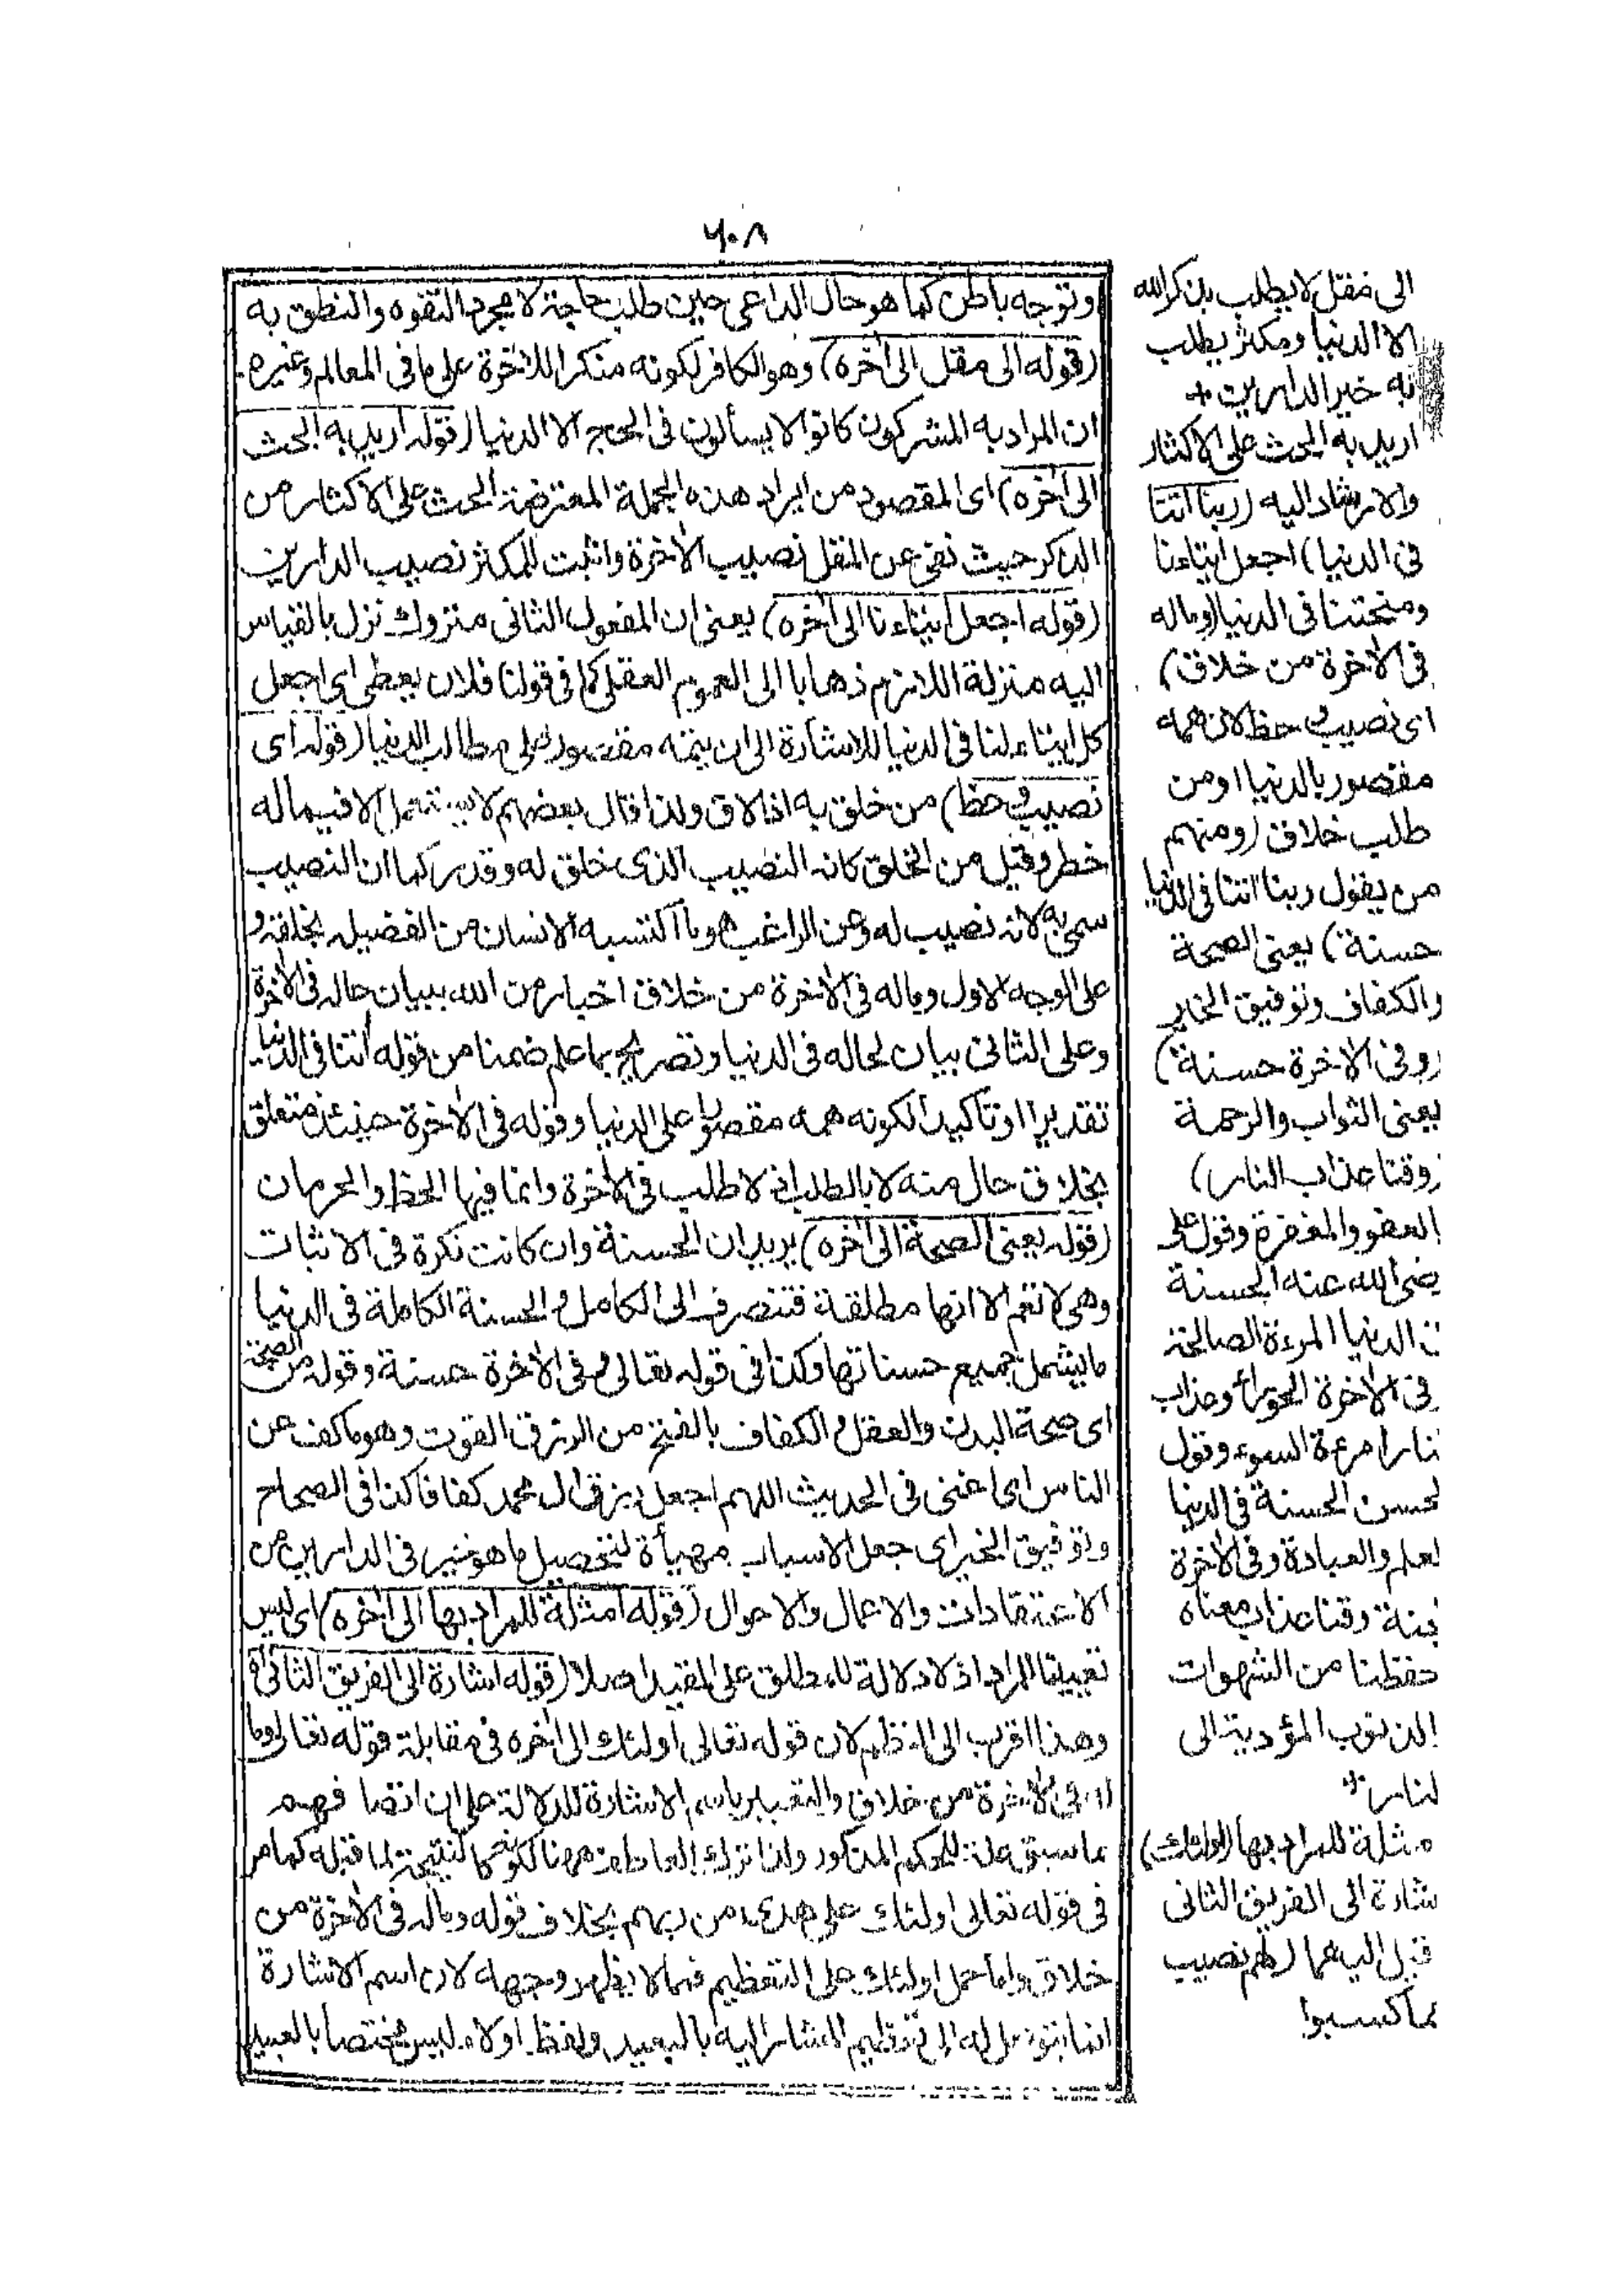 ٦٠٨
وتوجه باطن كما هو حال الداعى حين طلب حاجة لا مجرد التفوه والنطق به
(قوله الى مقل الى آخره) وهو الكافر لكونه منكرا للآخرة على ما فى المعالم وغيره
ان المراد به المشركون كانوا لا يسألون فى الحج الا الدنيا (قوله اريد به الحث
الى آخره) اى المقصود من ايراد هذه الجملة المعترضة الحث على الاكثار من
الذكر حيث نفى عن المقل نصيب الآخرة واثبت للمكثر نصيب الدارين
(قوله اجعل ايتاءنا الى آخره) يعنى ان المفعول الثانى متروك نزل بالقياس
اليه منزلة اللازم ذهابا الى العموم العقلى كما فى قولنا فلان يعطى اى اجعل
كل ايتاء لنا فى الدنيا للاشارة الى ان همته مقصور على مطالب الدنيا (قوله اى
نصيب وحظ) من خلق به اذا لاق ولذا قال بعضهم لا يستعمل الا فيما له
خطر وقيل من الخلق كانه النصيب الذى خلق له وقدر كما ان النصيب
سمى به لانه نصيب له وعن الراغب هو ما اكتسبه الانسان من الفضيلة بخلقه و
على الوجه الاول وماله فى الآخرة من خلاق اخبار من الله ببيان حاله فى الآخرة
وعلى الثانى بيان لحاله فى الدنيا وتصريح بما علم ضمنا من قوله آتنا فى الدنيا
تقديرا او تأكيدا لكونه همه مقصورا على الدنيا وقوله فى الآخرة حينئذ متعلق
بخلاق حال منه لا بالطلب اذ لا طلب فى الآخرة وانما فيها الحظ والحرمان
(قوله يعنى الصحة الى آخره) يريد ان الحسنة وان كانت نكرة فى الاثبات
وهى لا تعم الا انها مطلقة فتنصرف الى الكامل و الحسنة الكاملة فى الدنيا
ما يشمل جميع حسناتها وكذا فى قوله تعالى وفى الآخرة حسنة وقوله من الصحة
اى صحة البدن والعقل و الكفاف بالفتح من الرزق القوت وهو ما كف عن
الناس اى اغنى فى الحديث اللهم اجعل رزق ال محمد كفافا كذا فى الصحاح
وتوفيق الخير اى جعل الاسباب مهيأة لتحصيل ما هو خير فى الدارين من
الاعتقادات والاعمال والاحوال (قوله امثلة للمراد بها الى آخره) اى ليس
تعيينا للمراد اذ لا دلالة للمطلق على المقيد اصلا (قوله اشارة الى الفريق الثانى)
وهذا اقرب الى النظم لان قوله تعالى اولئك الى آخره فى مقابلة قوله تعالى وما
له فى الآخرة من خلاق والتعبير باسم الاشارة للدلالة على ان اتصافهم
بما سبق علة للحكم المذكور ولذا ترك العاطف ههنا لكونه كالنتيجة لما قبله كما مر
فى قوله تعالى اولئك على هدى من ربهم بخلاف قوله وماله فى الآخرة من
خلاق واما حمل اولئك على التعظيم فمما لا يظهر وجهه لان اسم الاشارة
انما يتوسل به الى تعظيم المشار اليه بالبعيد ولفظ اولاء ليس مختصا بالبعيد
الى مقل لا يطلب بذكر الله
الا الدنيا ومكثر يطلب
به خير الدارين +
اريد به الحث على الاكثار
والارشاد اليه (ربنا آتنا
فى الدنيا) اجعل ايتاءنا
ومنحتنا فى الدنيا (وماله
فى الآخرة من خلاق)
اى نصيب و حظ لان همه
مقصور بالدنيا او من
طلب خلاق (ومنهم
من يقول ربنا آتنا فى الدنيا
حسنة) يعنى الصحة
والكفاف وتوفيق الخير
(وفى الآخرة حسنة)
يعنى الثواب والرحمة
(وقنا عذاب النار)
العفو والمغفرة وقول على
ضى الله عنه الحسنة
الدنيا المرءة الصالحة
فى الآخرة الحوراء وعذاب
نار امرءة السوء وقول
لحسن الحسنة فى الدنيا
لعلم والعبادة وفى الآخرة
لجنة وقنا عذاب معناه
حفظنا من الشهوات
الذنوب المؤدية الى
لنار
مثلة للمراد بها (اولئك)
شارة الى الفريق الثانى
قيل اليهما (لهم نصيب
مما كسبوا